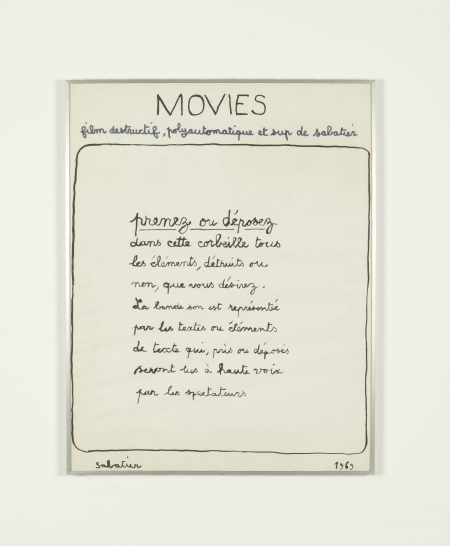 MOVIES
film destructif, polyautomatique et sup de sabatier
prenez ou déposez
dans cette corbeille tous
les éléments, détruits ou
non, que vous désirez.
La bande son est représentée
par les textes ou éléments
de texte qui, pris ou déposés
seront lus à haute voix
par les spectateurs
sabatier 1969